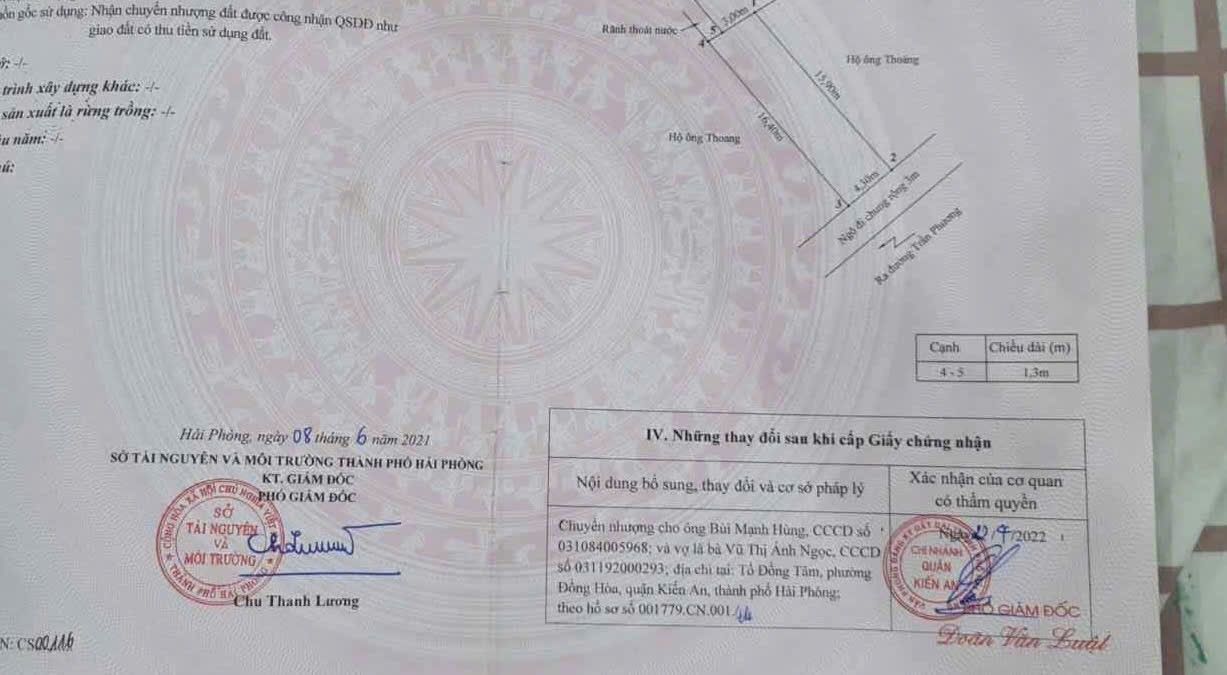 gốc sử dụng: Nhận chuyển nhượng đất được công nhận QSDĐ như
giao đất có thu tiền sử dụng đất.
-/-
trình xây dựng khác: -/-
sản xuất là rừng trồng: -/-
năm: -/-
Rãnh thoát nước
4
5
3,00m
1
Hộ ông Thoang
15,90m
16,40m
Hộ ông Thoang
2
4,30m
3
Ngõ đi chung rộng 3m
Ra đường Trần Phương
Cạnh Chiều dài (m)
4 - 5 1,3m
Hải Phòng, ngày 08 tháng 6 năm 2021
SỞ TÀI NGUYÊN VÀ MÔI TRƯỜNG THÀNH PHỐ HẢI PHÒNG
KT. GIÁM ĐỐC
PHÓ GIÁM ĐỐC
CỘNG HÒA XÃ HỘI CHỦ NGHĨA VIỆT
SỞ
TÀI NGUYÊN
VÀ
MÔI TRƯỜNG
THÀNH PHỐ HẢI PHÒNG
Chu Thanh Lương
N: CS00116
IV. Những thay đổi sau khi cấp Giấy chứng nhận
Nội dung bổ sung, thay đổi và cơ sở pháp lý
Xác nhận của cơ quan
có thẩm quyền
Chuyển nhượng cho ông Bùi Mạnh Hùng, CCCD số
031084005968; và vợ là bà Vũ Thị Ánh Ngọc, CCCD
số 031192000293; địa chỉ tại: Tổ Đồng Tâm, phường
Đồng Hòa, quận Kiến An, thành phố Hải Phòng;
theo hồ sơ số 001779.CN.001
Ngày /7/2022
VĂN PHÒNG ĐĂNG KÝ ĐẤT ĐAI
CHI NHÁNH
QUẬN
KIẾN AN
PHÓ GIÁM ĐỐC
Đoàn Văn Luật